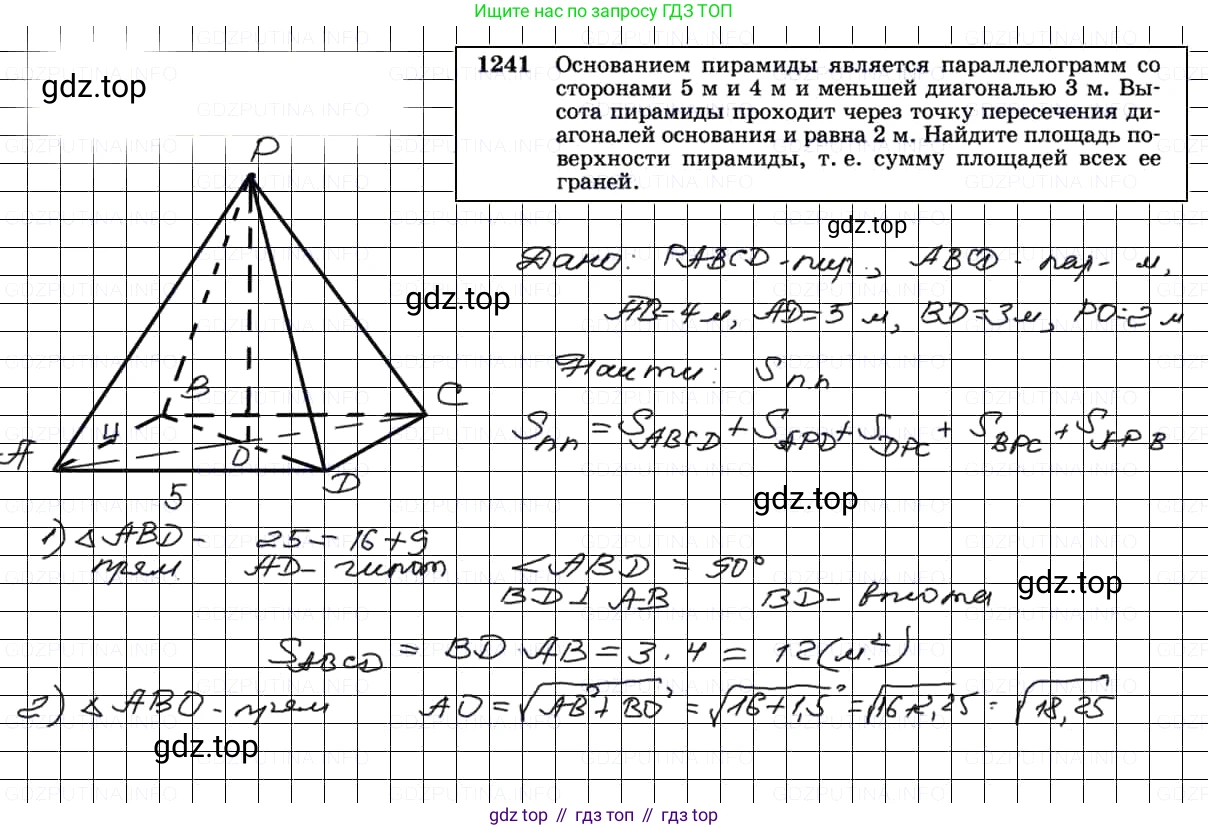 Ищите нас по запросу ГДЗ ТОП
1241 Основанием пирамиды является параллелограмм со
сторонами 5 м и 4 м и меньшей диагональю 3 м. Вы-
сота пирамиды проходит через точку пересечения ди-
агоналей основания и равна 2 м. Найдите площадь по-
верхности пирамиды, т. е. сумму площадей всех ее
граней.
gdz.top
P
gdz.top
Дано: PABCD - пир., ABCD - пар-м,
AB=4м, AD=5 м, BD=3м, PO=2м
gdz.top
Найти: Sпп
B
C
Sпп = SABCD + SAPD + SDPC + SBPC + SAPB
4
A
O
D
5
gdz.top
1) △ABD - 25=16+9
прям. AD- гипот ∠ABD = 90°
gdz.top
BD⊥AB BD- высота
SABCD = BD·AB=3·4= 12(м²)
2) △ABO - прям AO=√AB²+BO² = √16+1,5² = √16+2,25 = √18,25
gdz.top
gdz.top // гдз топ // gdz.top